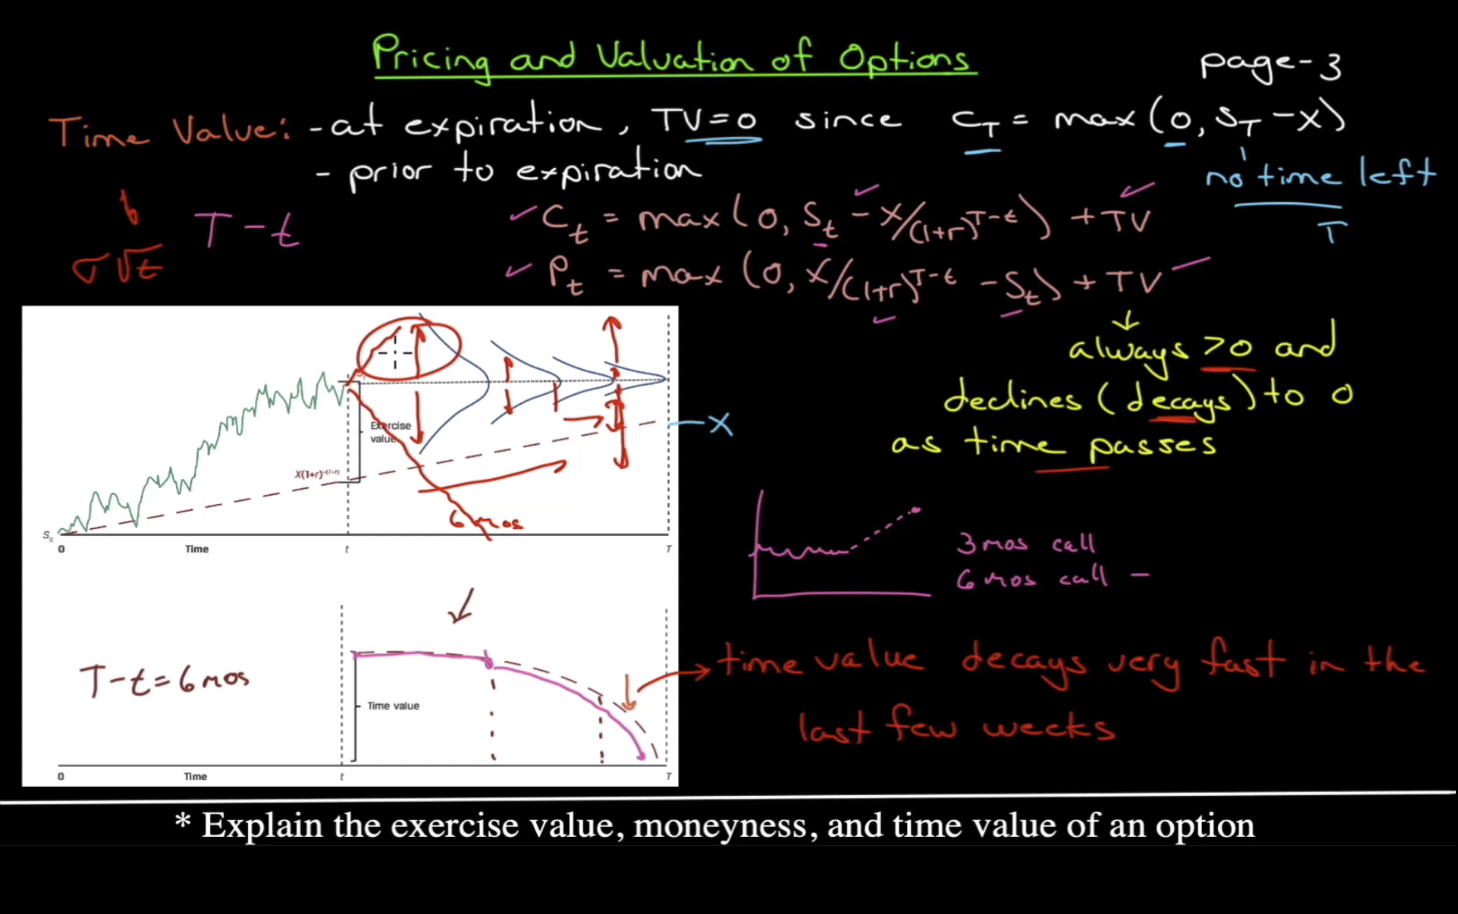 Pricing and Valuation of Options
page-3
Time Value: - at expiration, TV=0 since C_T = max(0, S_T - X)
- prior to expiration
no time left
T
σ√t
T - t
C_t = max(0, S_t - X/(1+r)^T-t) + TV
P_t = max(0, X/(1+r)^T-t - S_t) + TV
always >0 and
declines (decays) to 0
as time passes
Exercise
value
X
X(1+r)^-(T-t)
6 mos
S_0
0 Time t T
3 mos call
6 mos call -
T-t=6 mos
Time value
0 Time t T
time value decays very fast in the
last few weeks
* Explain the exercise value, moneyness, and time value of an option